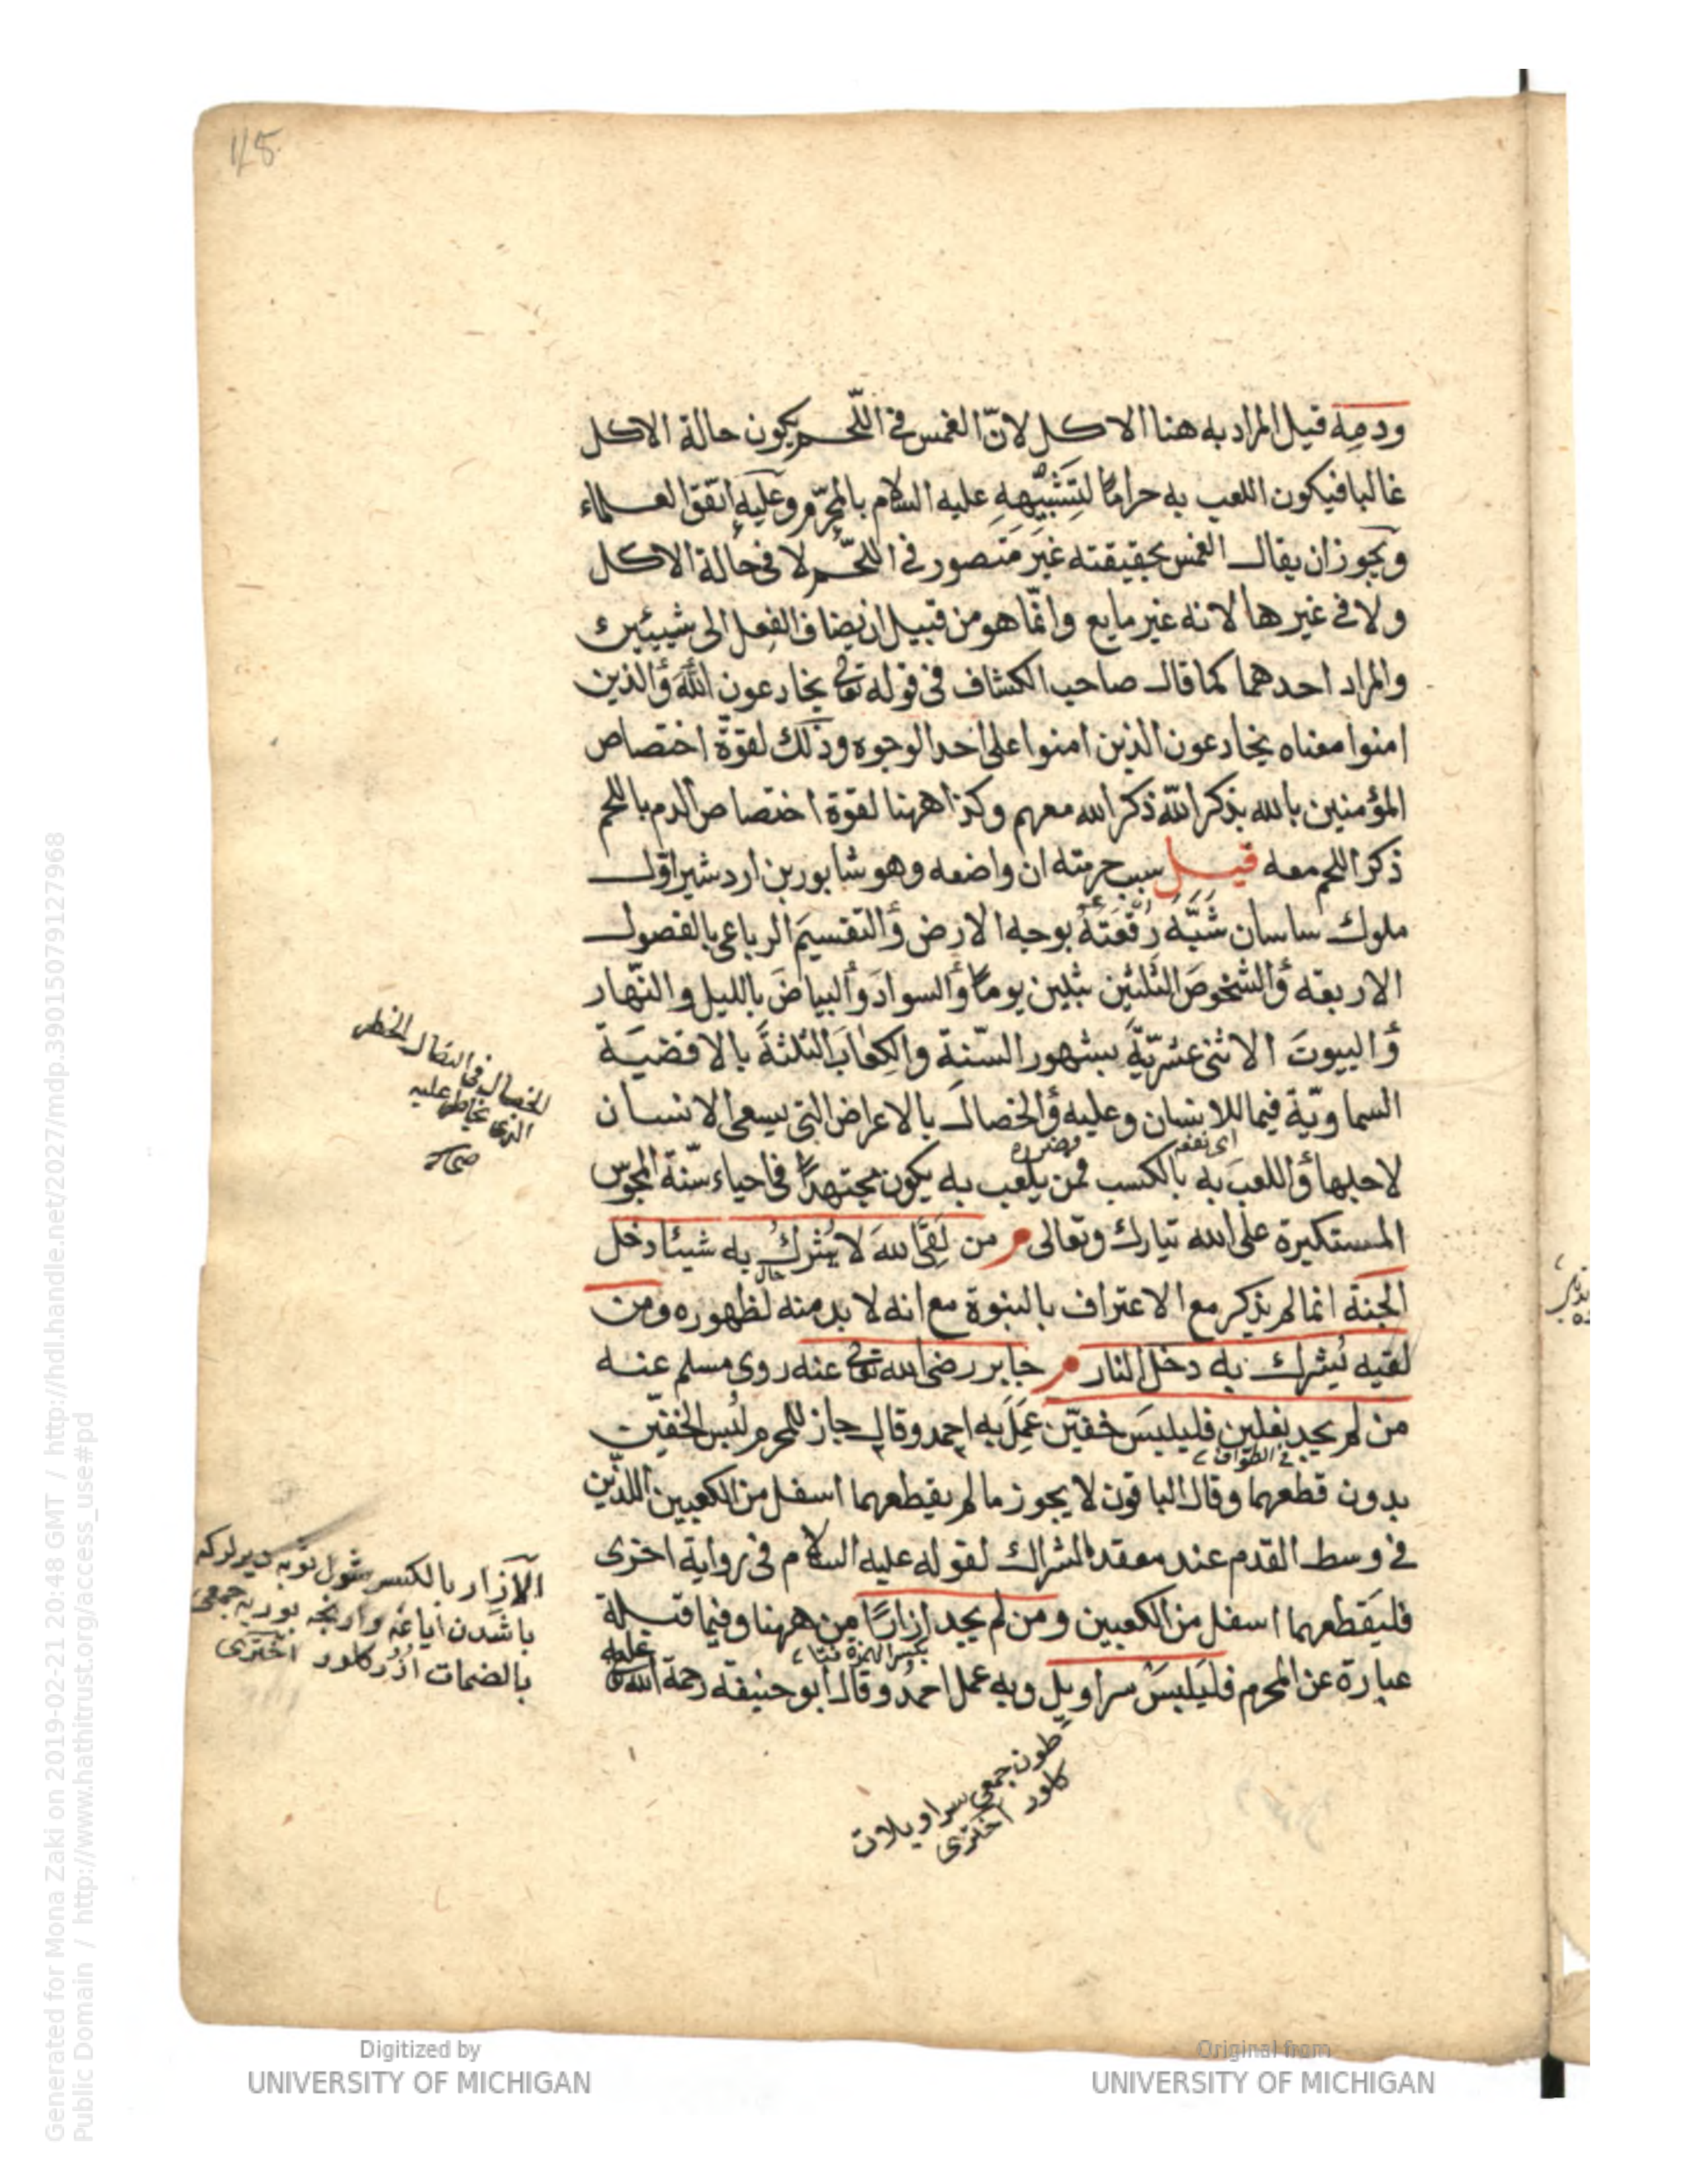 115
ودمه قيل المراد به هنا الاكل لانّ الغمس في اللّحم يكون حالة الاكل
غالبا فيكون اللعب به حرامًا لتشبيهه عليه السلام بالمحرّم وعليه اتّفق العلماء
ويجوز ان يقال الغمس بحقيقته غير متصور في اللّحم لا في حالة الاكل
ولا في غيرها لانه غير مايع وانّما هو من قبيل ان يضاف الفعل الى شيئين
والمراد احدهما كما قال صاحب الكشاف في قوله تعالى يخادعون الله والذين
امنوا معناه يخادعون الذين امنوا على احد الوجوه وذلك لقوّة اختصاص
المؤمنين بالله بذكر الله ذكر الله معهم وكذا ههنا لقوة اختصاص الدم باللحم
ذكر اللحم معه قيل سبب حرمته ان واضعه وهو شابور بن اردشير اوّل
ملوك ساسان شَبَّهَ رُقعَتَهُ بوجه الارض والتقسيمَ الرباعي بالفصول
الاربعه والشخوصَ الثلثين بثلثين يومًا والسوادَ والبياضَ بالليل والنّهار
والبيوتَ الاثنى عشريّةَ بشهور السّنة والكِعابَ الثلثةَ بالاقضيـة
السماويّة فيما للانسان وعليه والخصالَ بالاعراض التي يسعى الانسان
اى نفعه
مضرره
لاجلها واللعبَ به بالكسب فمن يلعب به يكون مجتهدًا في احياء سنّة المجوس
المستكبرة على الله تبارك وتعالى م من لَقِىَ الله لا يُشركُ به شيئا دخل
حال
الجنة انما لم يذكر مع الاعتراف بالنبوة مع انه لا بد منه لظهوره ومن
لقيه يُشرك به دخل النار م جابر رضى الله تعالى عنه روى مسلم عنه
من لم يجد نعلين فليلبسَ خفيّن عَمِلَ به احمد وقال جاز للمحرم لبس الخفين
في الطواف
بدون قطعهما وقال الباقون لا يجوز ما لم يقطعهما اسفل من الكعبين اللذين
في وسط القدم عند معقد الشراك لقوله عليه السلام في رواية اخرى
فليَقطعهما اسفل من الكعبين ومن لم يجد ازارًا من ههنا وفيما قبـله
بكسر الهمزة
عبارة عن المحرم فليَلبسَ سراويل وبه عمل احمد وقال ابو حنيفه رحمة الله عليه
للخصال في النضال الخطر
الذى يخاطر عليه
صحاح
الازار بالكسر شول ثوبه ديرلر كه
بالضمات اُزُر كلور اختری
طون جمعى سراويلات
كلور اختری
Generated for Mona Zaki on 2019-02-21 20:48 GMT / http://hdl.handle.net/2027/mdp.39015079127968
Public Domain / http://www.hathitrust.org/access_use#pd
Digitized by
UNIVERSITY OF MICHIGAN
Original from
UNIVERSITY OF MICHIGAN